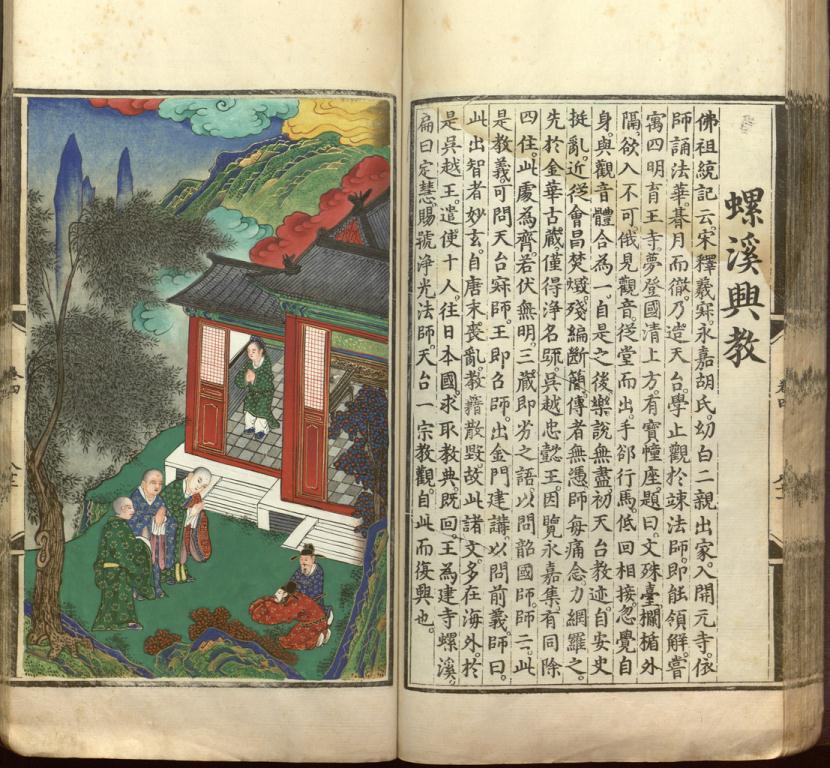 螺溪興教
佛祖統記云。宋釋羲寂。永嘉胡氏。幼白二親出家。入開元寺。依
師誦法華。朞月而徹。乃造天台學止觀於竦法師。即能領解。嘗
寓四明育王寺。夢登國清上方。有寶幢座。題曰文殊臺。欄楯外
隔。欲入不可。俄見觀音。從堂而出。手卻行馬。低回相接。忽覺自
身。與觀音體合為一。自是之後。樂說無盡。初天台教迹。自安史
挺亂。近從會昌焚燬。殘編斷簡。傳者無憑。師每痛念。力網羅之。
先於金華古藏。僅得淨名䟽。吳越忠懿王。因覽永嘉集。有同除
四住。此處為齊。若伏無明。三藏即劣之語。以問韶國師。師云。此
是教義。可問天台寂師。王即召師。出金門建講。以問前義。師曰。
此出智者妙玄。自唐末喪亂。教籍散毀。故此諸文。多在海外。於
是吳越王。遣使十人。往日本國。求取教典。既回。王為建寺螺溪。
扁曰定慧。賜號淨光法師。天台一宗教觀。自此而復興也。